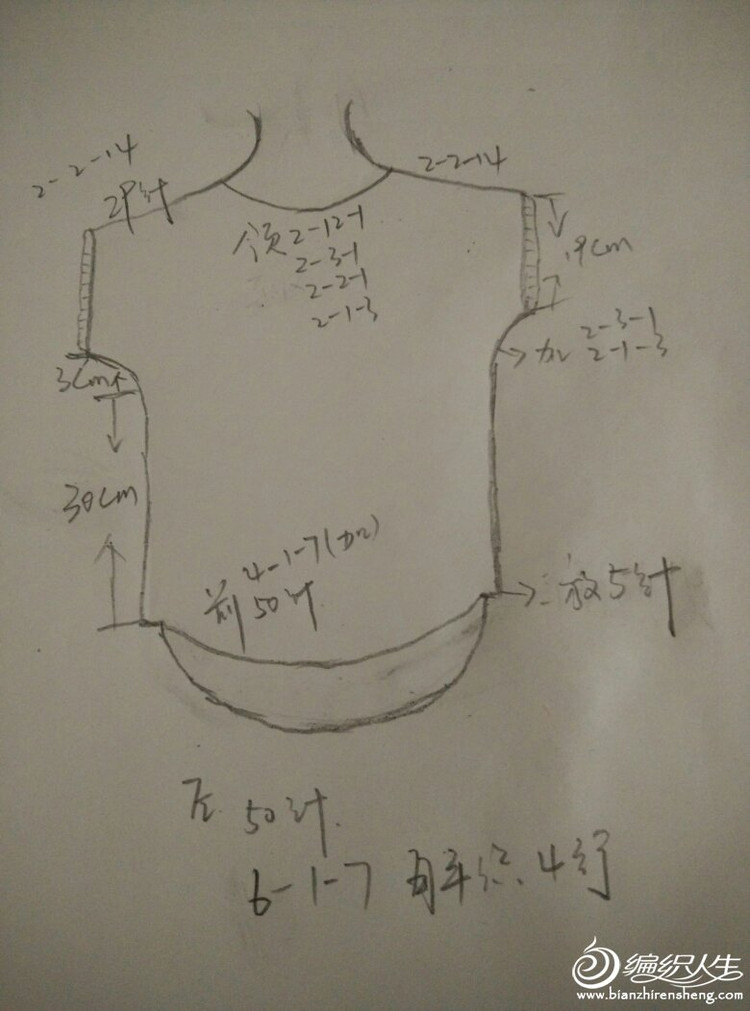 2-2-14
2-2-14
针
领 2-12-1
2-3-1
2-2-1
2-1-3
19cm
加 2-3-1
2-1-3
3cm
30cm
4-1-7(加)
前 50针
放5针
后 50针
6-1-7 再平织4行
编织人生
www.bianzhirensheng.com